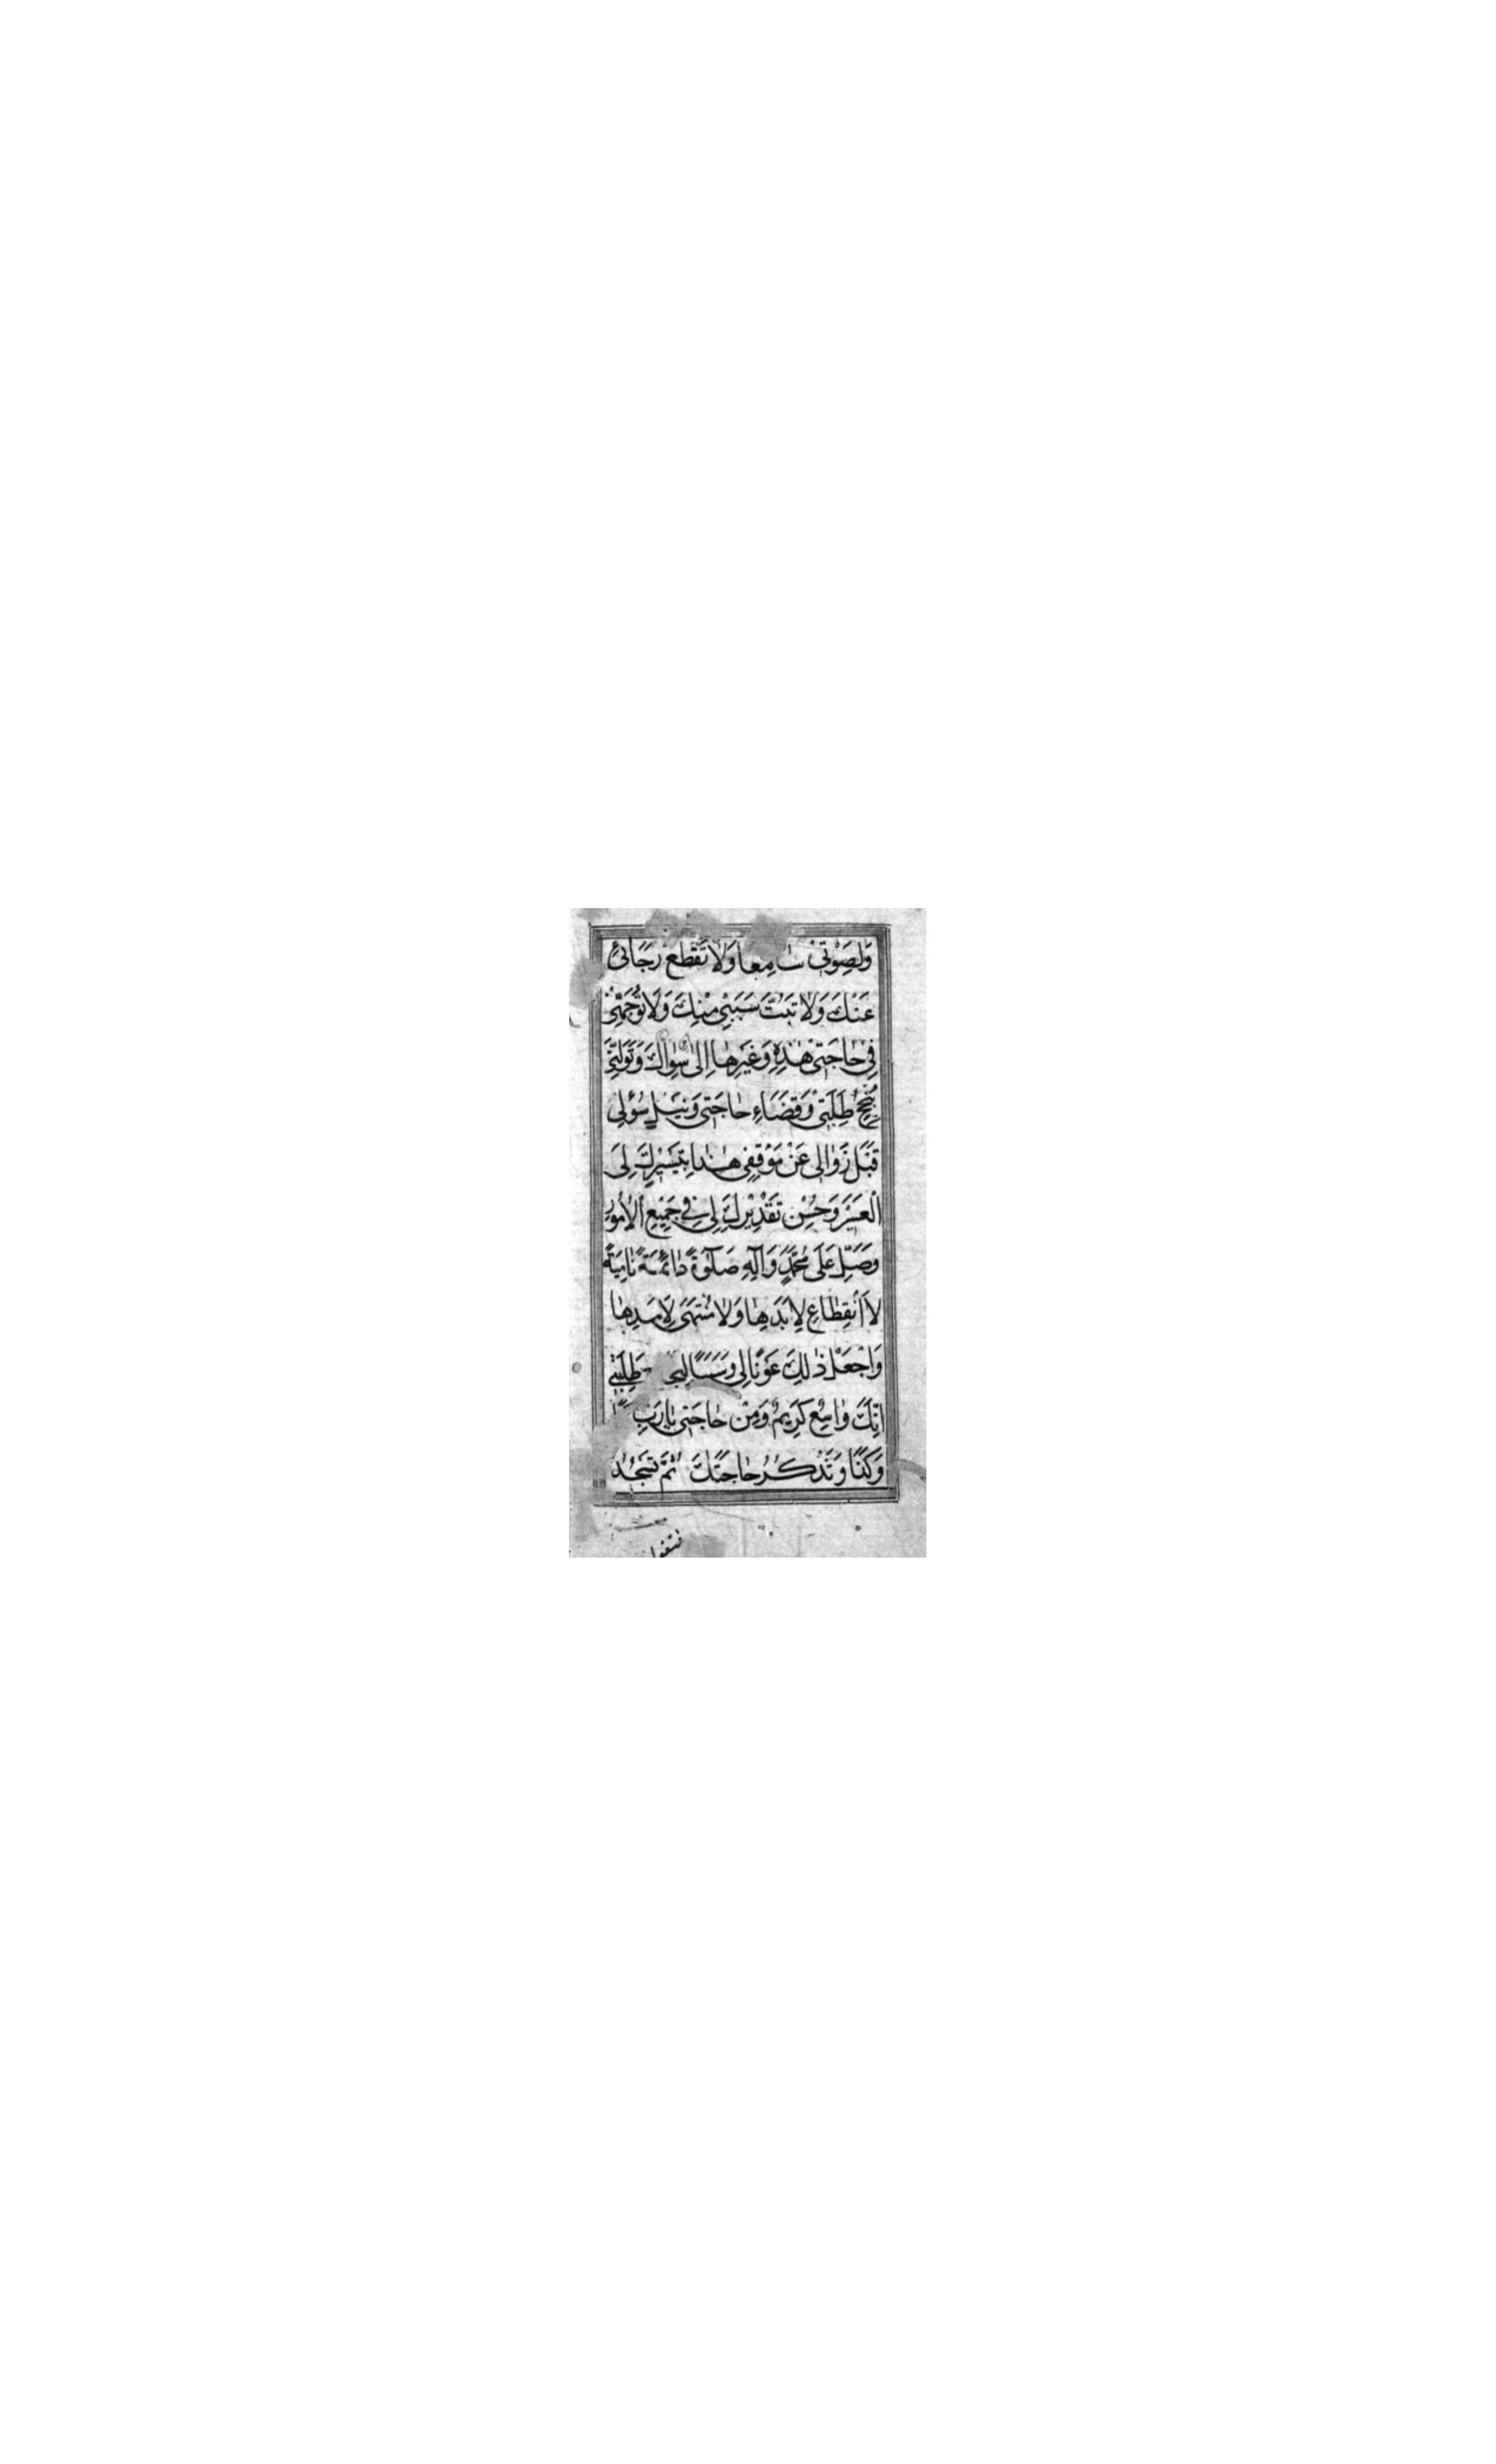 وَلِصَوْتِي سَامِعًا وَلَا تَقْطَعْ رَجَائِي
عَنْكَ وَلَا تَبُتَّ سَبَبِي مِنْكَ وَلَا تُوَجِّهْنِي
فِي حَاجَتِي هٰذِهِ وَغَيْرِهَا اِلىٰ سِوَاكَ وَتَوَلَّنِي
بِنُجْحِ طَلِبَتِي وَقَضَاءِ حَاجَتِي وَنَيْلِ سُؤْلِي
قَبْلَ زَوَالِي عَنْ مَوْقِفِي هٰذَا بِتَيْسِيرِكَ لِيَ
الْعَسِيرَ وَحُسْنِ تَقْدِيْرِكَ لِي فِي جَمِيْعِ الْاُمُورِ
وَصَلِّ عَلَى مُحَمَّدٍ وَآلِهِ صَلٰوةً دَائِمَةً نَامِيَةً
لَا انْقِطَاعَ لِاَبَدِهَا وَلَا مُنْتَهَى لِاَمَدِهَا
وَاجْعَلْ ذٰلِكَ عَوْنًا لِي وَسَبَبًا لِنَجَاحِ طَلِبَتِي
اِنَّكَ وَاسِعٌ كَرِيمٌ وَمِنْ حَاجَتِي يَا رَبِّ كَذَا
وَكَذَا وَتَذْكُرُ حَاجَتَكَ ثُمَّ تَسْجُدُ